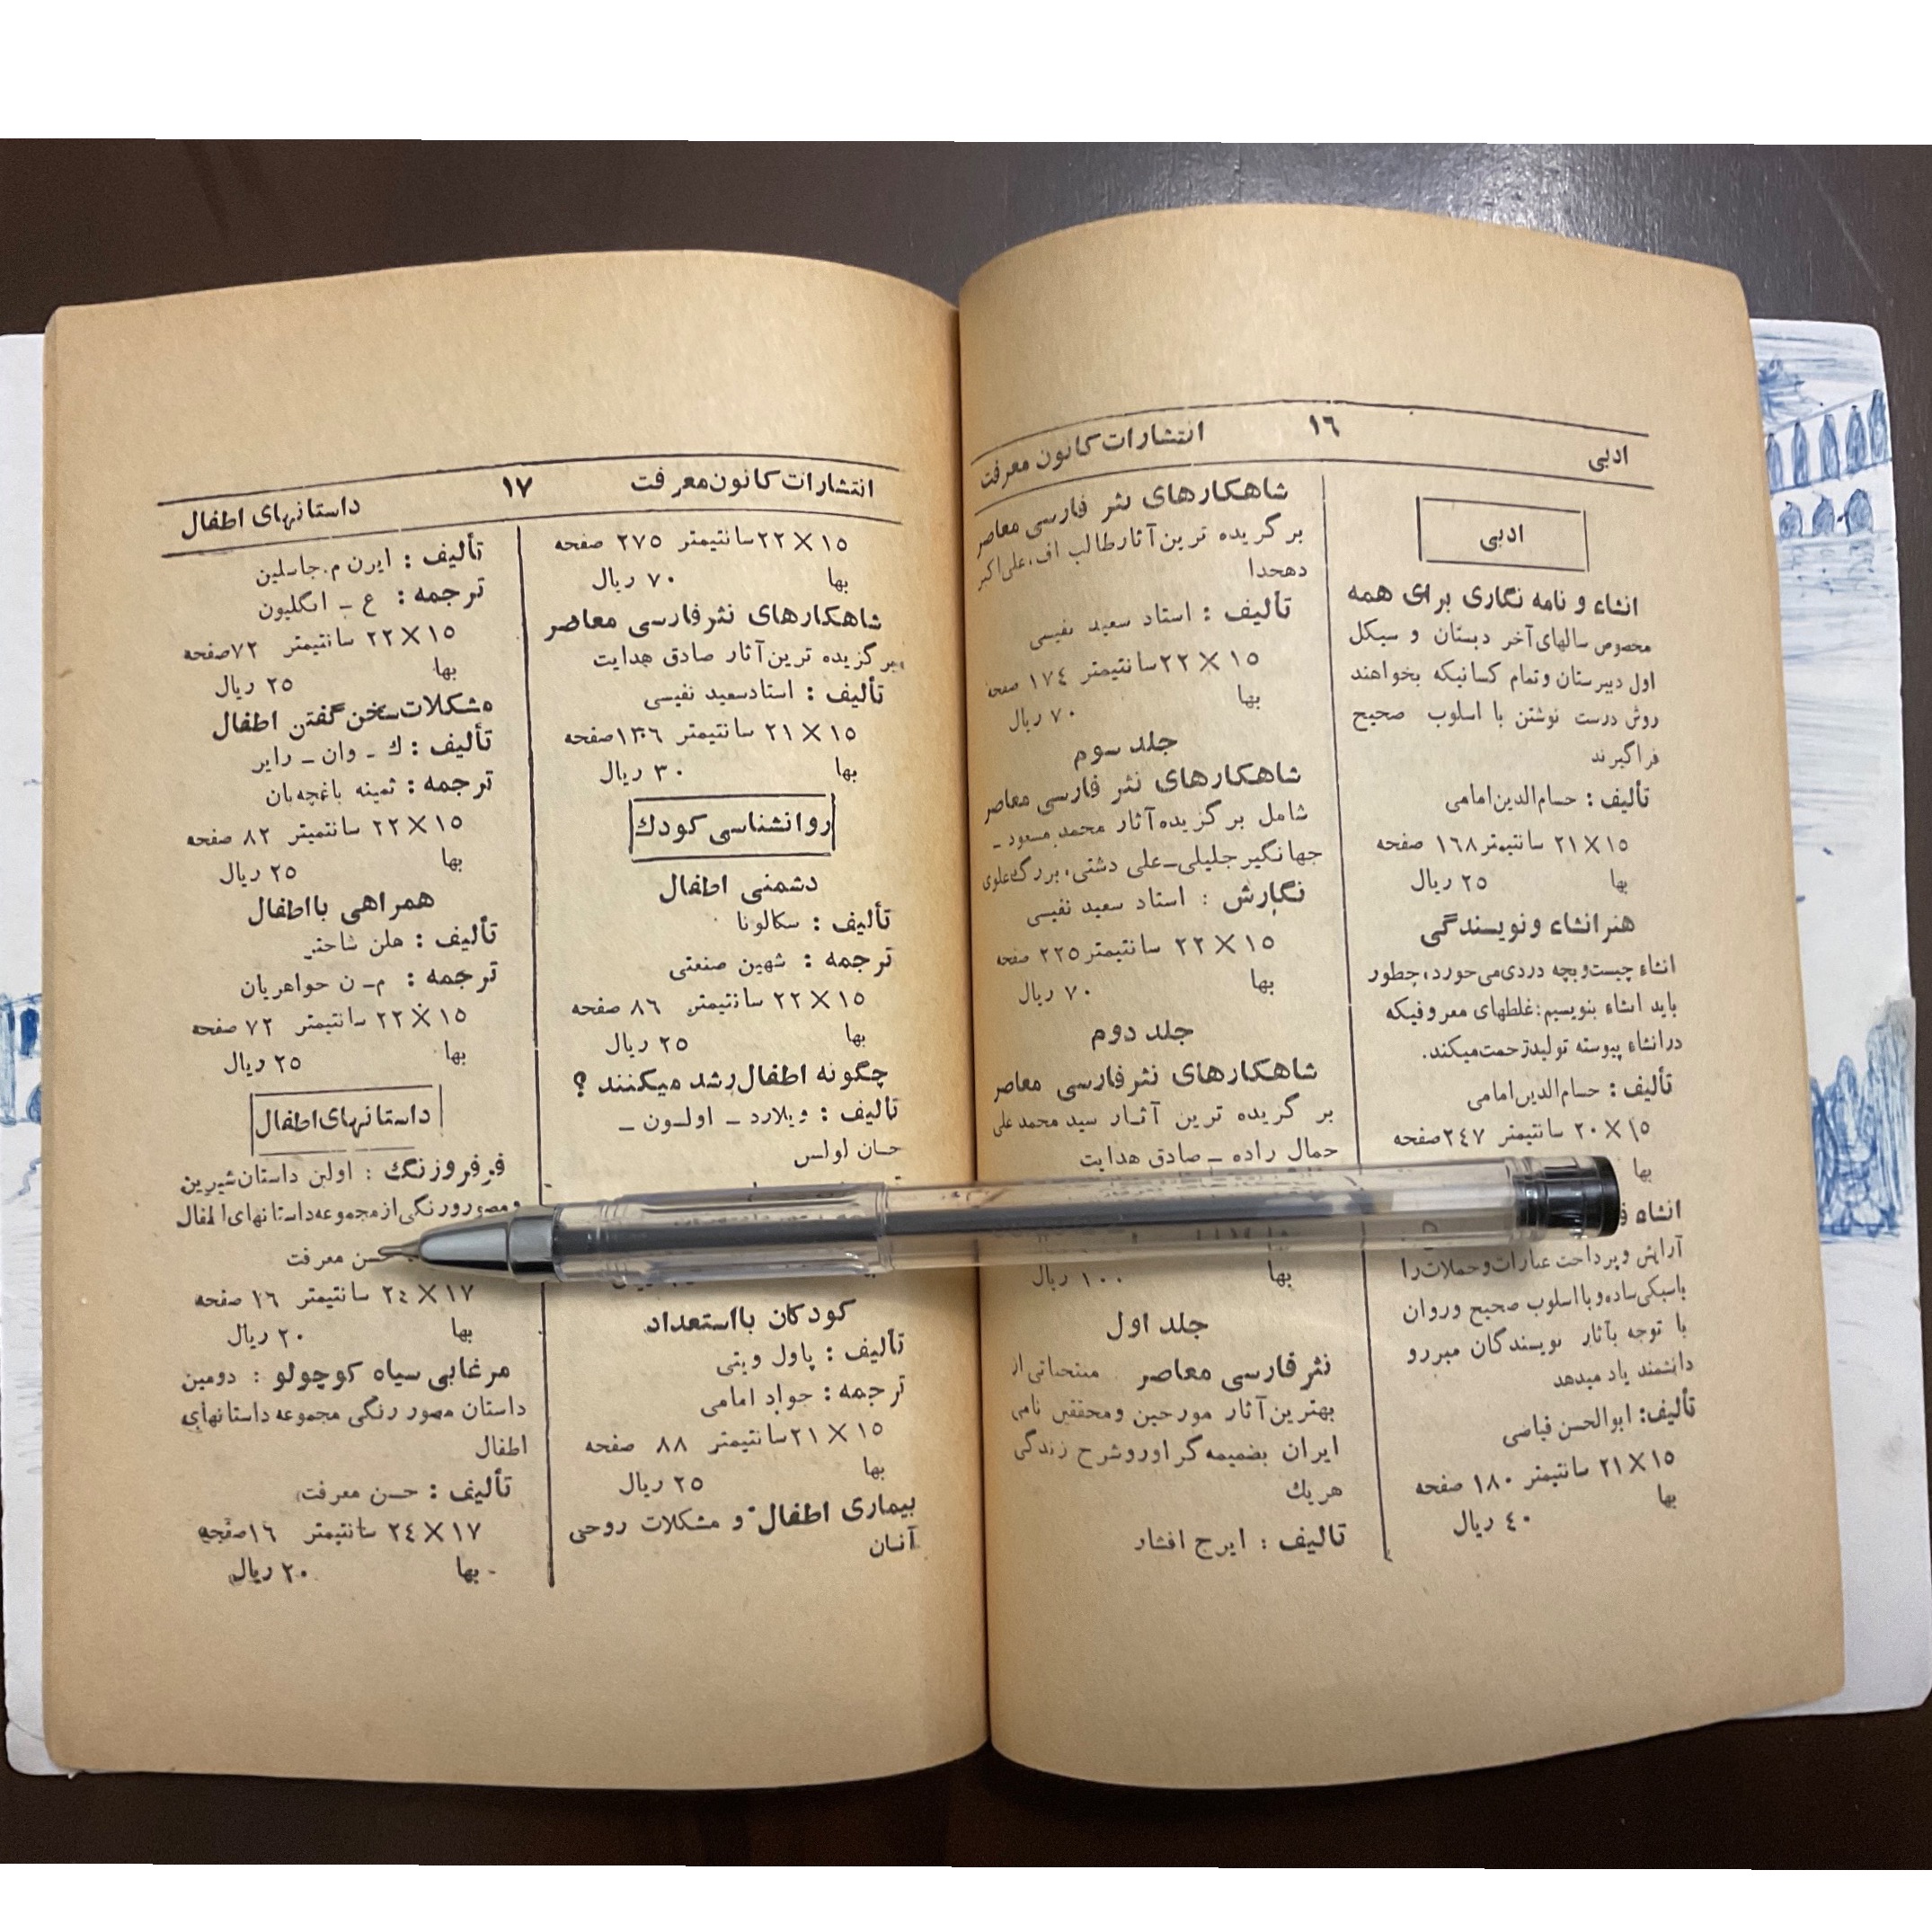 ادبی ١٦ انتشارات كانون معرفت
ادبی
انشاء و نامه نگاری برای همه
مخصوص سالهای آخر دبستان و سيكل
اول دبيرستان وتمام كسانيكه بخواهند
روش درست نوشتن با اسلوب صحيح
فراگيرند
تأليف : حسام‌الدين امامی
١٥×٢١ سانتيمتر ١٦٨ صفحه
بها ٢٥ ريال
هنر انشاء و نويسندگی
انشاء چيست و بچه دردی می‌خورد، چطور
بايد انشاء بنويسيم: غلطهای معروفيكه
در انشاء پيوسته توليد زحمت ميكند.
تأليف : حسام‌الدين امامی
١٥×٢٠ سانتيمتر ٢٤٧ صفحه
بها
انشاء
آرايش و پرداخت عبارات و جملات را
باسبكی ساده و با اسلوب صحيح و روان
با توجه بآثار نويسندگان مبرر و
دانشمند ياد ميدهد
تأليف: ابوالحسن فياضی
١٥×٢١ سانتيمتر ١٨٠ صفحه
بها ٤٠ ريال
شاهكارهای نثر فارسی معاصر
برگزيده ترين آثار طالب اف، علی اكبر
دهخدا
تأليف : استاد سعيد نفيسی
١٥×٢٢ سانتيمتر ١٧٤ صفحه
بها ٧٠ ريال
جلد سوم
شاهكارهای نثر فارسی معاصر
شامل برگزيده آثار محمد مسعود -
جهانگير جليلی - علی دشتی، بزرگ علوی
نگارش : استاد سعيد نفيسی
١٥×٢٢ سانتيمتر ٢٢٥ صفحه
بها ٧٠ ريال
جلد دوم
شاهكارهای نثر فارسی معاصر
برگزيده ترين آثار سيد محمد علی
جمال زاده - صادق هدايت
بها ١٠٠ ريال
جلد اول
نثر فارسی معاصر منتخباتی از
بهترين آثار مورخين و محققين نامی
ايران بضميمه گراور و شرح زندگی
هريك
تأليف : ايرج افشار
انتشارات كانون معرفت ١٧ داستانهای اطفال
١٥×٢٢ سانتيمتر ٢٧٥ صفحه
بها ٧٠ ريال
شاهكارهای نثر فارسی معاصر
برگزيده ترين آثار صادق هدايت
تأليف : استاد سعيد نفيسی
١٥×٢١ سانتيمتر ١٣٦ صفحه
بها ٣٠ ريال
روانشناسی كودك
دشمنی اطفال
تأليف : سكالونا
ترجمه : شهين صنعتی
١٥×٢٢ سانتيمتر ٨٦ صفحه
بها ٢٥ ريال
چگونه اطفال رشد ميكنند ؟
تأليف : ويلارد - اولسون -
كودكان با استعداد
تأليف : پاول ويتی
ترجمه : جواد امامی
١٥×٢١ سانتيمتر ٨٨ صفحه
بها ٢٥ ريال
بيماری اطفال و مشكلات روحی
آنان
تأليف : ايرن م. جاسلين
ترجمه : ع - انگليون
١٥×٢٢ سانتيمتر ٧٢ صفحه
بها ٢٥ ريال
مشكلات سخن گفتن اطفال
تأليف : ك - وان - رايپر
ترجمه : ثمينه باغچه‌بان
١٥×٢٢ سانتميتر ٨٢ صفحه
بها ٢٥ ريال
همراهی با اطفال
تأليف : هلن شاختر
ترجمه : م - ن جواهريان
١٥×٢٢ سانتيمتر ٧٢ صفحه
بها ٢٥ ريال
داستانهای اطفال
فرفروزنگ : اولين داستان شيرين
و مصور و رنگی از مجموعه داستانهای اطفال
حسن معرفت
١٧×٢٤ سانتيمتر ١٦ صفحه
بها ٢٠ ريال
مرغابی سياه كوچولو : دومين
داستان مصور رنگی مجموعه داستانهای
اطفال
تأليف : حسن معرفت
١٧×٢٤ سانتيمتر ١٦ صفحه
بها ٢٠ ريال